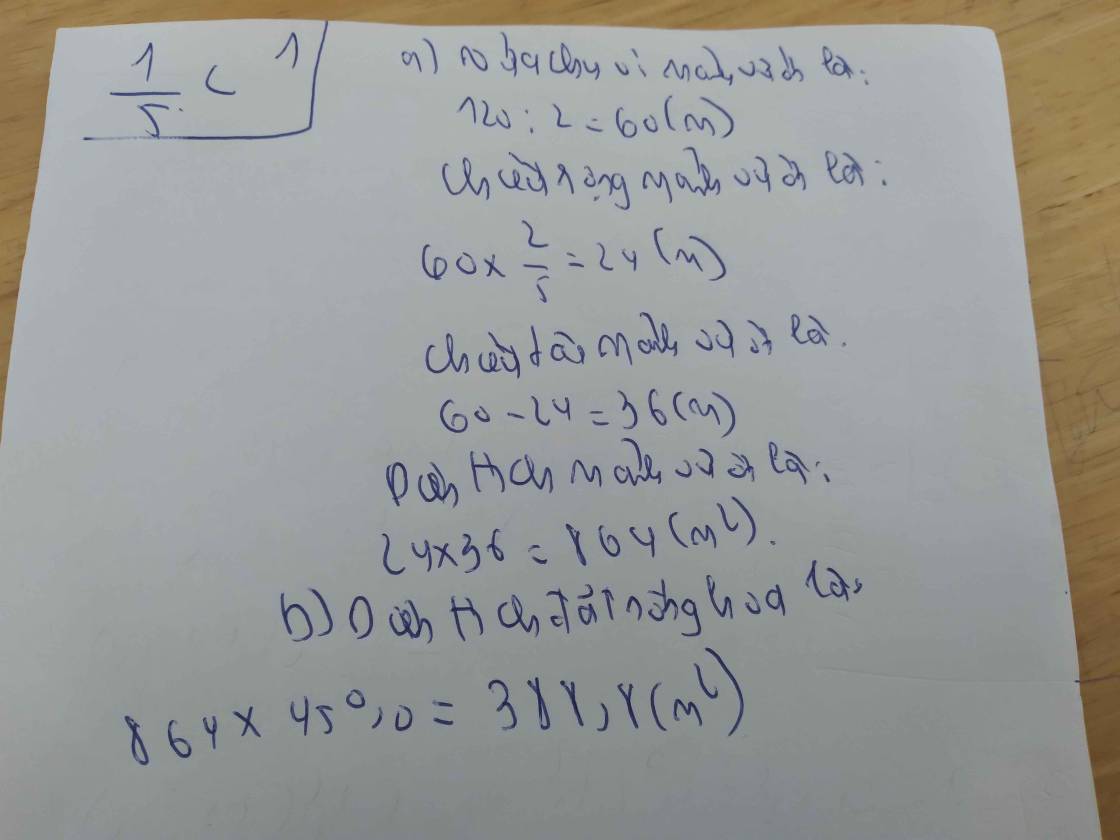 1/5 < 1
a) Nửa chu vi mảnh vườn là:
120 : 2 = 60 (m)
Chiều rộng mảnh vườn là:
60 x 2/5 = 24 (m)
Chiều dài mảnh vườn là.
60 - 24 = 36 (m)
Diện tích mảnh vườn là:
24 x 36 = 864 (m²).
b) Diện tích đất trồng hoa là:
864 x 45% = 388,8 (m²)